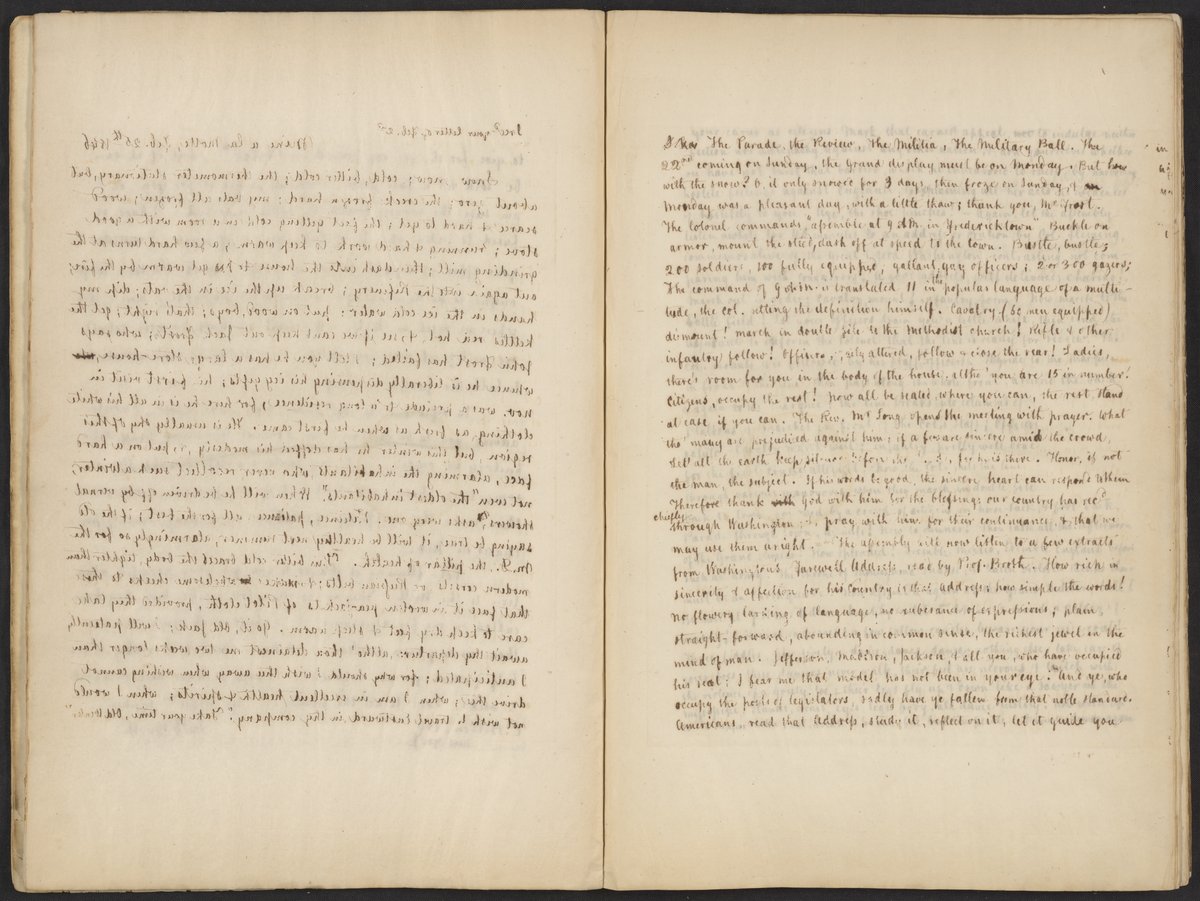 I recd your letter of Feb. 2d
Mine a la Motte, Feb. 25th 1846
Snow, snow; cold, bitter cold; the thermometer stationary, but
about zero; the creek frozen hard; my vats all frozen; wood
scarce & hard to get; the feet getting cold in a room with a good
stove; running & hard work to keep warm; a few hard turns at the
grinding mill; then dash into the house to get warm by the fire;
out again into the Refinery; break up the ice in the vats; dip my
hands in the ice cold water: put in wood, boys; that's right; get the
kettles red hot, & see if we cant keep out Jack Frost; who says
John Frost has failed; I tell you he has a large store-house,
whence he is liberally dispensing his icy gifts; he first went in
nov. was a prelude to a long residence; for here he is in all his white
clothing, as fresh as when he first came. He is usually shy of this
region, but this winter he has off his modesty, & put on a hard
face, alarming the inhabitants who never recollect such a winter,
not even "the oldest inhabitants". When will he be driven off by vernal
showers? asks every one. Patience, patience all for the best; if the old
saying be true, it will be healthy next summer, alarmingly so for the
M.D. the of health. 'Tim bitter cold braces the body, tighter than
modern corsets or Russian belts; & makes wholesome checks to them
that face it in woolen pea-jackets of Pilot cloth, provided they take
care to keep dry feet & sleep warm. Go it, old Jack; I will patiently
await thy departure: altho' thou detainest me two weeks longer than
I anticipated; for why should I wish thee away when wishing cannot
drive thee; when I am in excellent health & spirits; when I would
not wish to travel eastward in thy company. "Take your time, Old
The Parade, the Review, The Militia, The Military Ball. The
22nd coming on Sunday, the grand display must be on Monday. But how
with the snow? O, it only snowed for 3 days, then froze on Sunday, &
Monday was a pleasant day, with a little thaw; thank you, Mr Frost.
The Colonel commands "assemble at 9 A.M. in Fredericktown" Buckle on
armor, mount the steed, dash off at speed to the town. Bustle, bustle;
200 soldiers, 100 fully equipped, gallant, gay officers; 2 or 300 gazers;
The command of 9 o'clk is translated 11 in the popular language of a multi-
tude, the Col. setting the definition himself. Cavalry (50 men equipped)
dismount! march in double file to the Methodist church! Rifle & other
infantry follow! Officers, gaily attired, follow & close the rear! Ladies,
there's room for you in the body of the house, altho' you are 15 in number!
Citizens, occupy the rest! Now all be seated where you can, the rest stand
at ease, if you can. The Rev. Mr Long opens the meeting with prayer. What
tho' many are prejudiced against him; if a few are sincere amid the crowd,
Let all the earth keep silence before the Lord, for he is there. Honor, if not
the man, the subject. If his words be good, the sincere heart can respond to them
Therefore thank God with him for the blessings our country has recd
chiefly
through Washington; & pray with him for their continuance, & that we
may use them aright. The assembly will now listen to a few extracts
from Washington's Farewell Address, read by Prof. Broth. How rich in
sincerity & affection for his Country is that address; how simple the words!
no flowery larking of language, no exuberance of expressions; plain
straight-forward, abounding in common sense, the richest jewel in the
mind of man. Jefferson, Madison, Jackson, & all you, who have occupied
his seat; I fear me that model has not been in your eye. And ye, who
occupy the posts of legislators, sadly have ye fallen from that noble standard.
Americans, read that address, study it, reflect on it; let it guide you